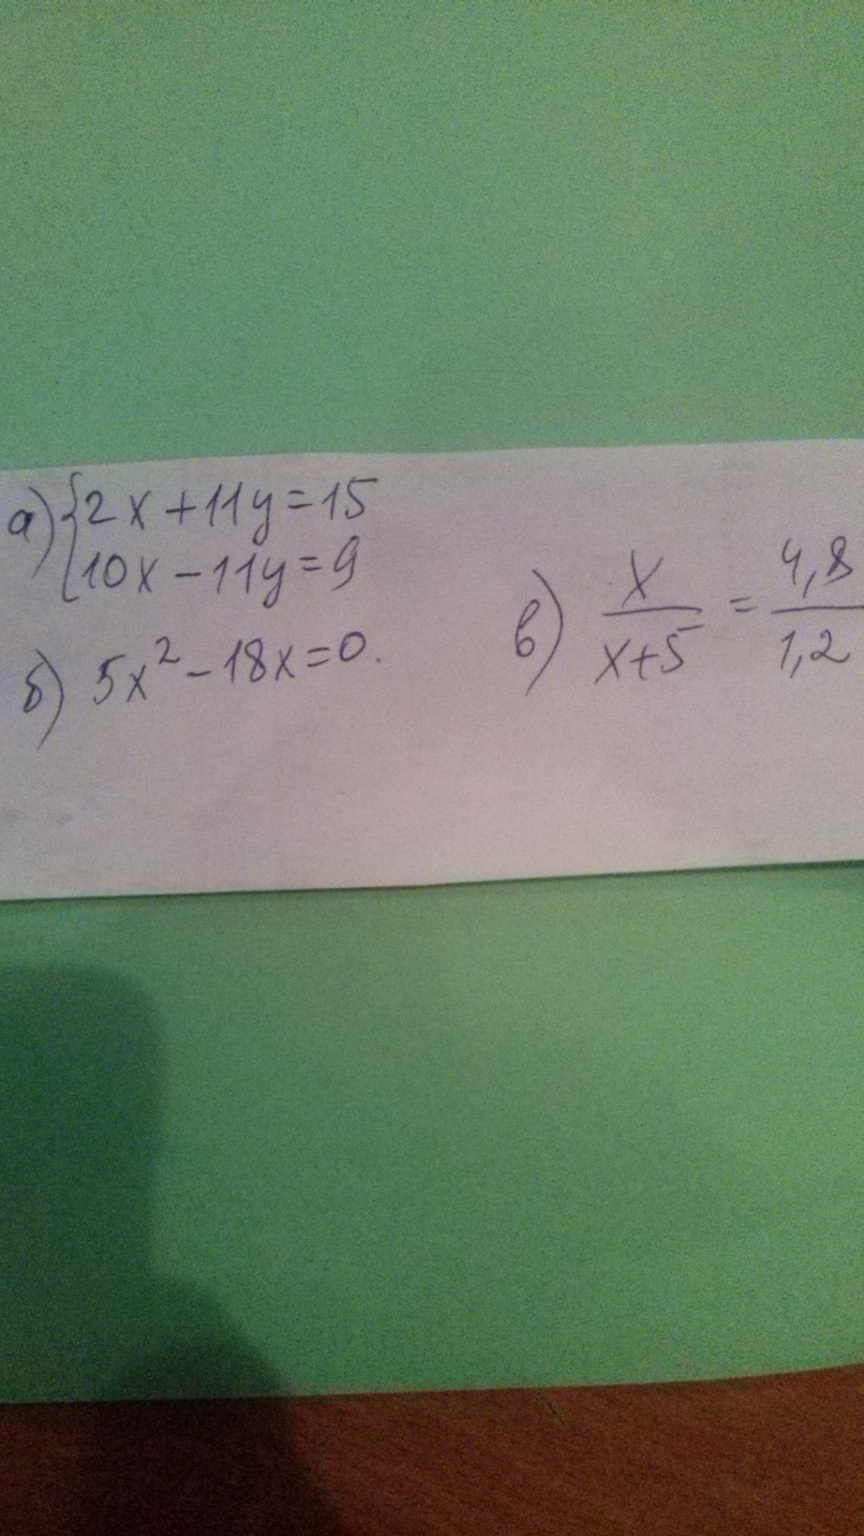 а) {2x+11y=15
10x-11y=9
б) 5x²-18x=0.
в) x/(x+5) = 4,8/1,2